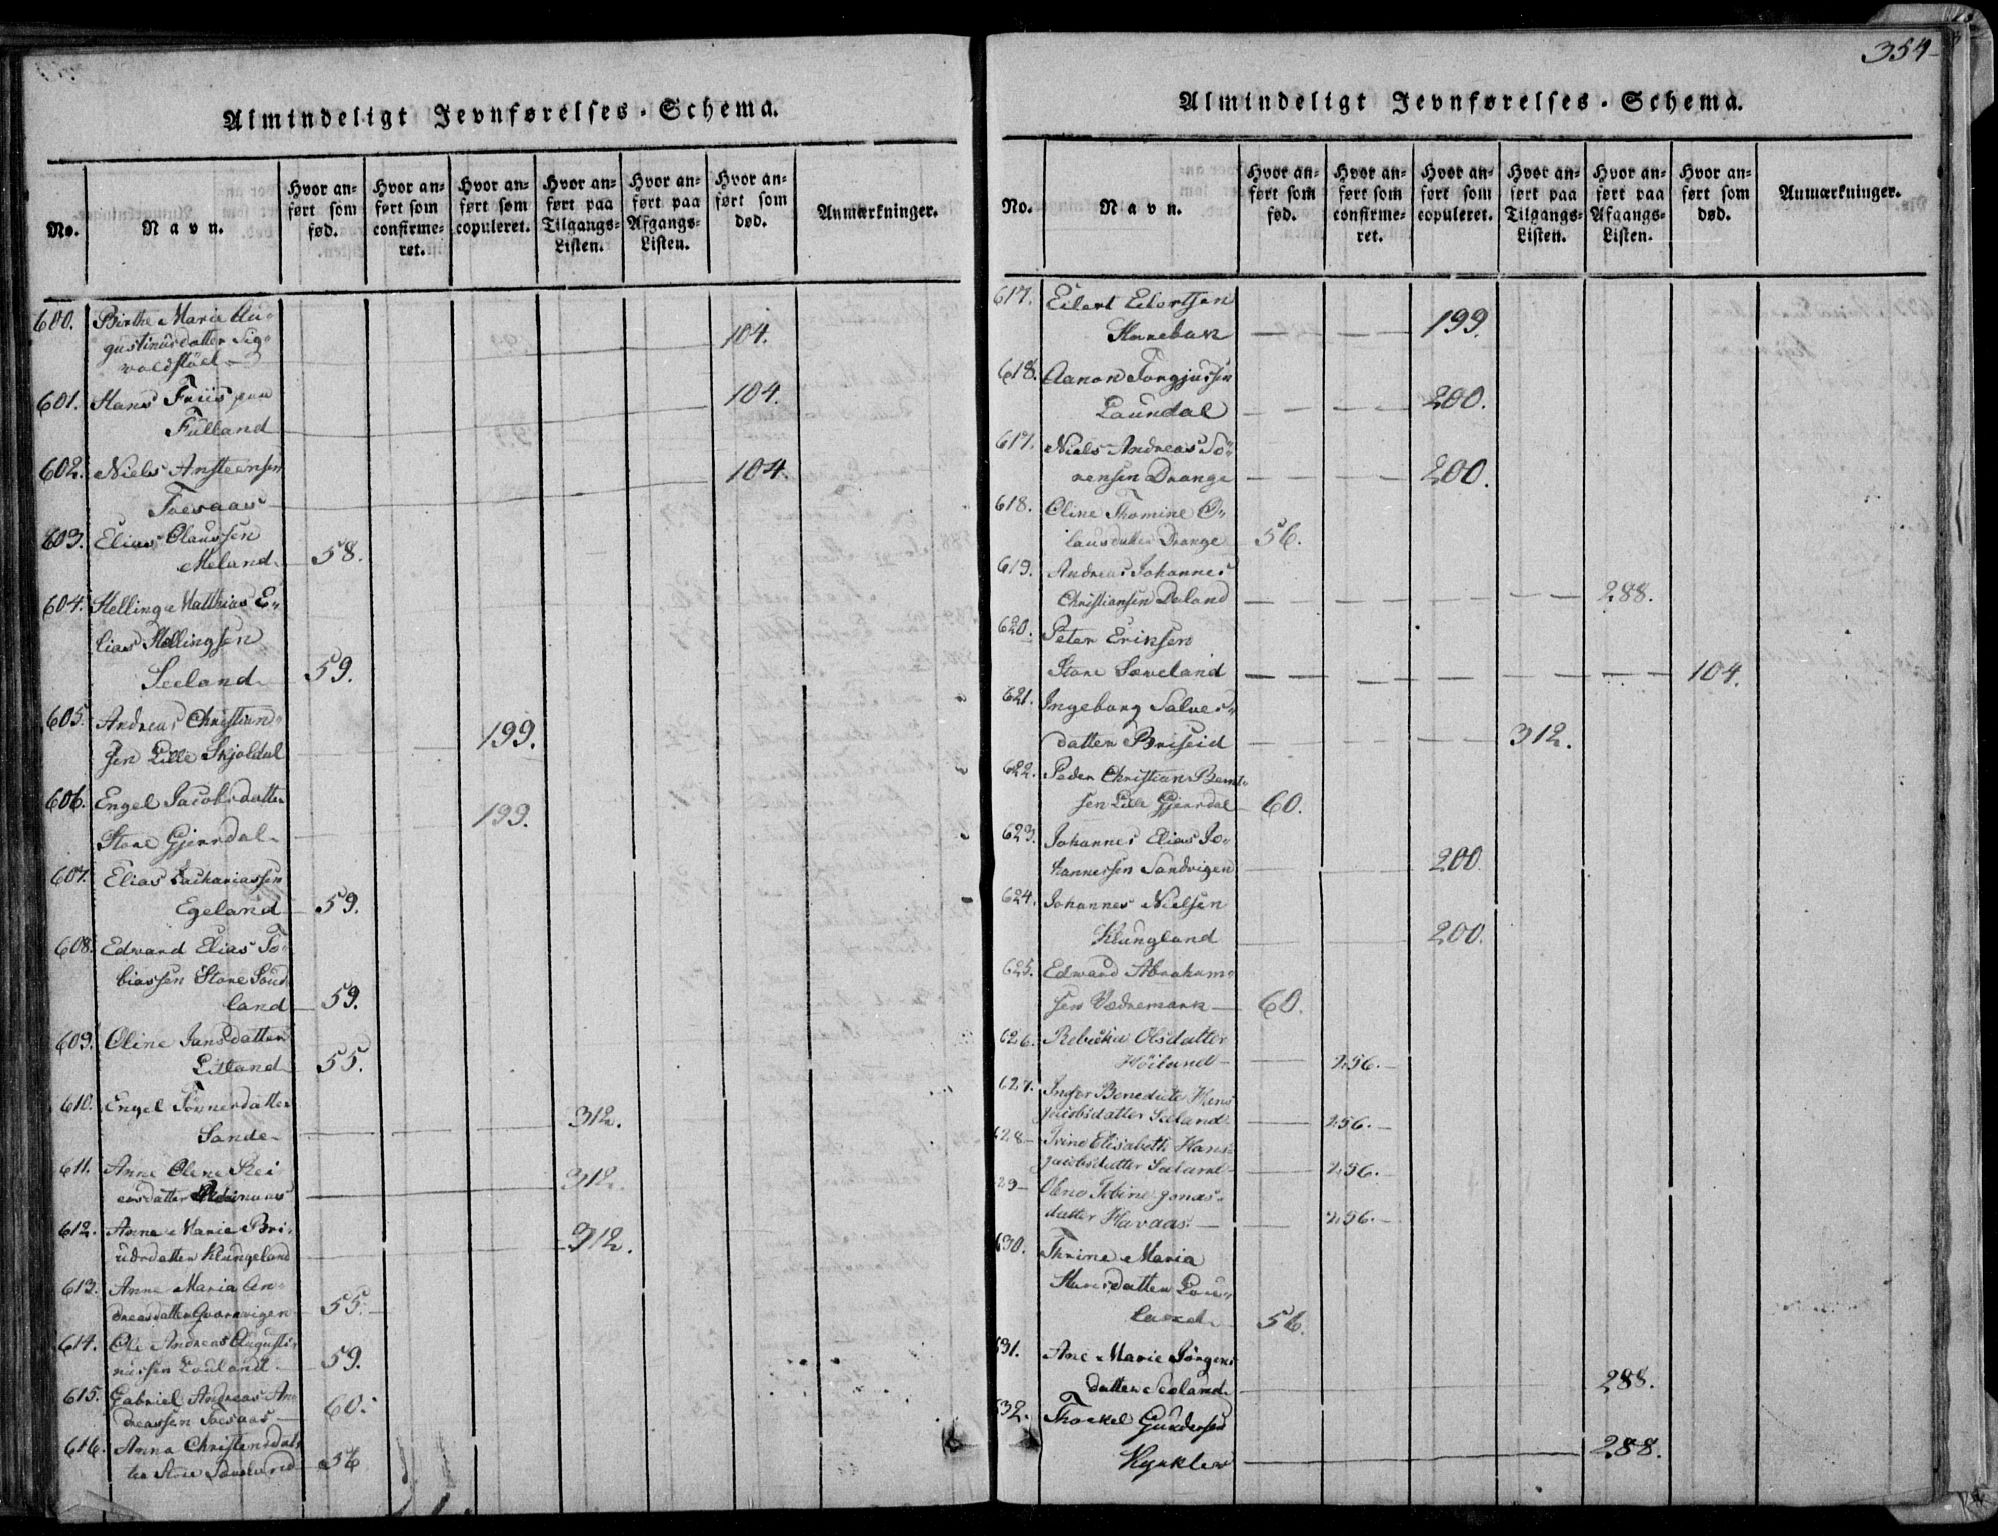 354
Almindeligt Jevnførelses-Schema.
No.
Navn.
Hvor an-
ført som
fød.
Hvor an-
ført som
confirme-
ret.
Hvor an-
ført som
copuleret.
Hvor an-
ført paa
Tilgangs-
Listen.
Hvor an-
ført paa
Afgangs-
Listen.
Hvor an-
ført som
død.
Anmærkninger.
600. Birthe Marie Au-
gustinusdatter Sig-
valdstöel 104.
601. Hans Friis paa
Fülland 104.
602. Niels Ansteensen
Toesaas 104.
603. Elias Olaussen
Meland 58.
604. Helling Matthias E-
lias Hellingsen
Seeland 59.
605. Andreas Christian-
sen Lille Skjoldal 199.
606. Engel Jacobsdatter
Store Gjerrdal 199.
607. Elias Zachariassen
Egeland 59.
608. Edvard Elias To-
biassen Store
land 59.
609. Oline Jansdatter
Litland 55.
610. Engel Tönnesdatter
Sande 312.
611. Anne Olene Rei-
ersdatter 312.
612. Anne Marie
Klungeland 312.
613. Anne Maria An-
dreasdatter Qvarevigen 55.
614. Ole Andreas Augusti-
nussen 59.
615. Gabriel Andreas An-
dreassen Toesaas 60.
616. Anna Christensdat-
ter Store 56
Almindeligt Jevnførelses-Schema.
No.
Navn.
Hvor an-
ført som
fød.
Hvor an-
ført som
confirme-
ret.
Hvor an-
ført som
copuleret.
Hvor an-
ført paa
Tilgangs-
Listen.
Hvor an-
ført paa
Afgangs-
Listen.
Hvor an-
ført som
død.
Anmærkninger.
617. Eilert Eilertsen
199.
618. Aanon Torgjussen
Laundal 200.
617. Niels Andreas Sö-
rensen Drange 200.
618. Oline Thomine O-
lausdatter Drange 56.
619. Andreas Johannes
Christiansen Daland 288.
620. Peter Eriksen
Store Sæveland 104.
621. Ingeborg Salves-
datter Briseid 312.
622. Peder Christian Bernt-
sen Lille Gjerrdal 60.
623. Johannes Elias Jo-
hannessen Sandvigen 200
624. Johannes Nielsen
Klungland 200.
625. Edward Abraham-
sen Vedremark 60.
626. Olsdatter
Höiland 256.
627. Benedicte Hans
jacobsdatter Seland 256.
628 Trine Elisabeth Hans
jacobsdatter Seland 256.
29 Olene Tobine Jonas-
datter Havaas 256.
630. Thrine Maria
Hansdatter
land 56.
631. Ane Marie Jörgens
datter Seeland 288.
632. Thorkel Gundersen
288.